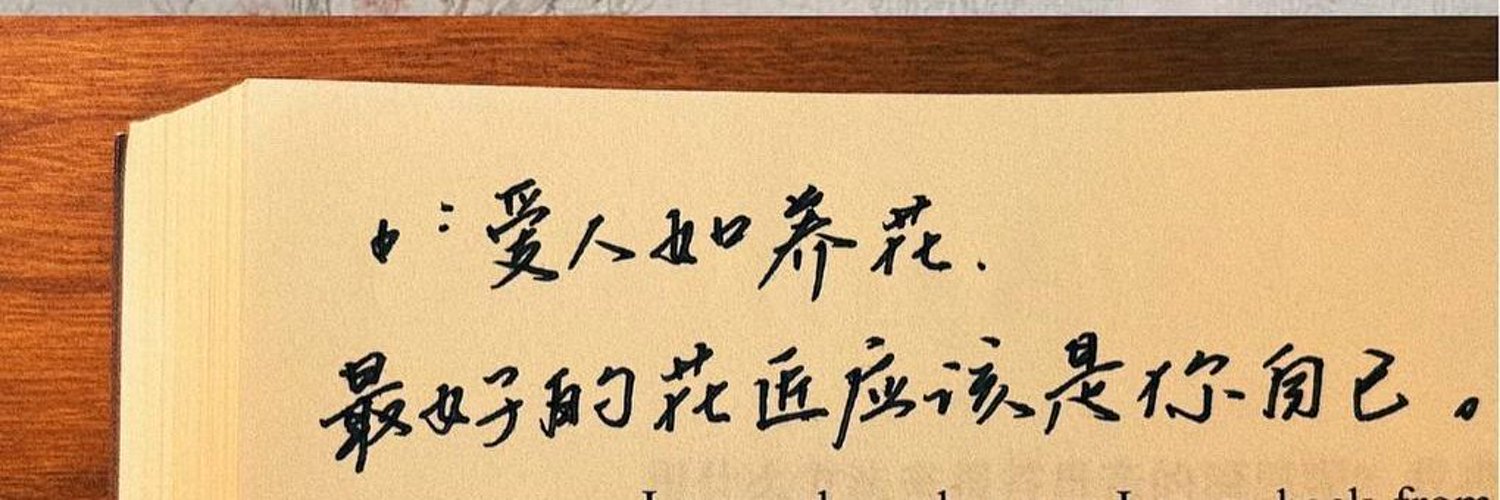 爱人如养花.
最好的花匠应该是你自己。